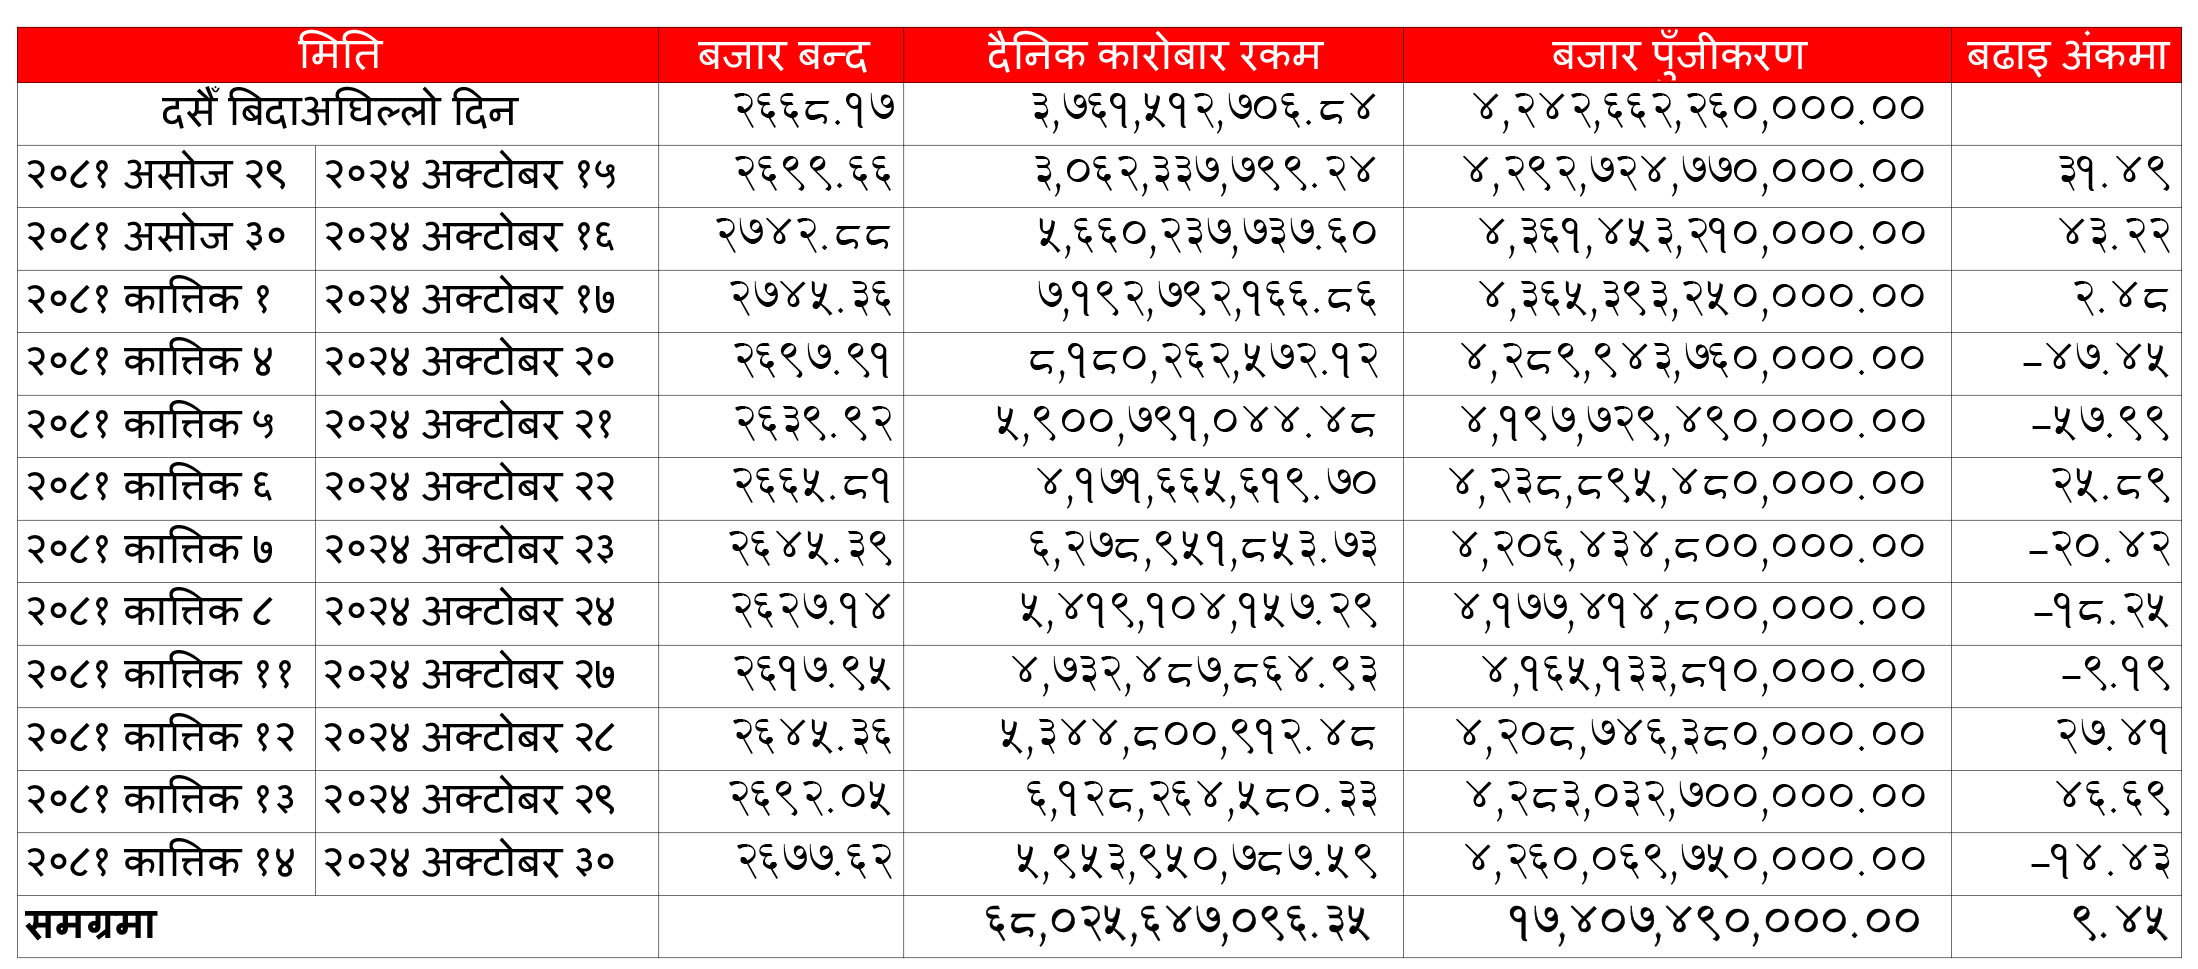 मिति बजार बन्द दैनिक कारोबार रकम बजार पुँजीकरण बढाइ अंकमा
दसैँ बिदाअघिल्लो दिन २६६८.१७ ३,७६१,५१२,७०६.८४ ४,२४२,६६२,२६०,०००.००
२०८१ असोज २९ २०२४ अक्टोबर १५ २६९९.६६ ३,०६२,३३७,७९९.२४ ४,२९२,७२४,७७०,०००.०० ३१.४९
२०८१ असोज ३० २०२४ अक्टोबर १६ २७४२.८८ ५,६६०,२३७,७३७.६० ४,३६१,४५३,२१०,०००.०० ४३.२२
२०८१ कात्तिक १ २०२४ अक्टोबर १७ २७४५.३६ ७,१९२,७९२,१६६.८६ ४,३६५,३९३,२५०,०००.०० २.४८
२०८१ कात्तिक ४ २०२४ अक्टोबर २० २६९७.९१ ८,१८०,२६२,५७२.१२ ४,२८९,९४३,७६०,०००.०० –४७.४५
२०८१ कात्तिक ५ २०२४ अक्टोबर २१ २६३९.९२ ५,९००,७९१,०४४.४८ ४,१९७,७२९,४९०,०००.०० –५७.९९
२०८१ कात्तिक ६ २०२४ अक्टोबर २२ २६६५.८१ ४,१७१,६६५,६१९.७० ४,२३८,८९५,४८०,०००.०० २५.८९
२०८१ कात्तिक ७ २०२४ अक्टोबर २३ २६४५.३९ ६,२७८,९५१,८५३.७३ ४,२०६,४३४,८००,०००.०० –२०.४२
२०८१ कात्तिक ८ २०२४ अक्टोबर २४ २६२७.१४ ५,४१९,१०४,१५७.२९ ४,१७७,४१४,८००,०००.०० –१८.२५
२०८१ कात्तिक ११ २०२४ अक्टोबर २७ २६१७.९५ ४,७३२,४८७,८६४.९३ ४,१६५,१३३,८१०,०००.०० –९.१९
२०८१ कात्तिक १२ २०२४ अक्टोबर २८ २६४५.३६ ५,३४४,८००,९१२.४८ ४,२०८,७४६,३८०,०००.०० २७.४१
२०८१ कात्तिक १३ २०२४ अक्टोबर २९ २६९२.०५ ६,१२८,२६४,५८०.३३ ४,२८३,०३२,७००,०००.०० ४६.६९
२०८१ कात्तिक १४ २०२४ अक्टोबर ३० २६७७.६२ ५,९५३,९५०,७८७.५९ ४,२६०,०६९,७५०,०००.०० –१४.४३
समग्रमा ६८,०२५,६४७,०९६.३५ १७,४०७,४९०,०००.०० ९.४५